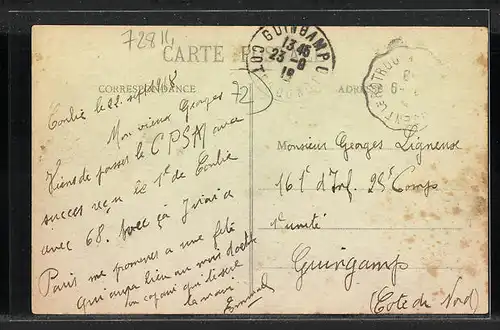 72814
CARTE POSTALE
CORRESPONDANCE
ADRESSE
GUINGAMP
13 45
23 -9
18
72
Conlie le 22
Mon vieux Georges
Viens de passer le CPSM avec
succès reçu le 1er de Conlie
avec 68. Avec ça j'irai a
Paris me promener a une fête
qui aura lieu au mois d'octbre
ton copain qui te serre
la main
Monsieur Georges Ligneux
161e d'Inf. 25e Comp
1e unité
Guingamp
(Côte du Nord)